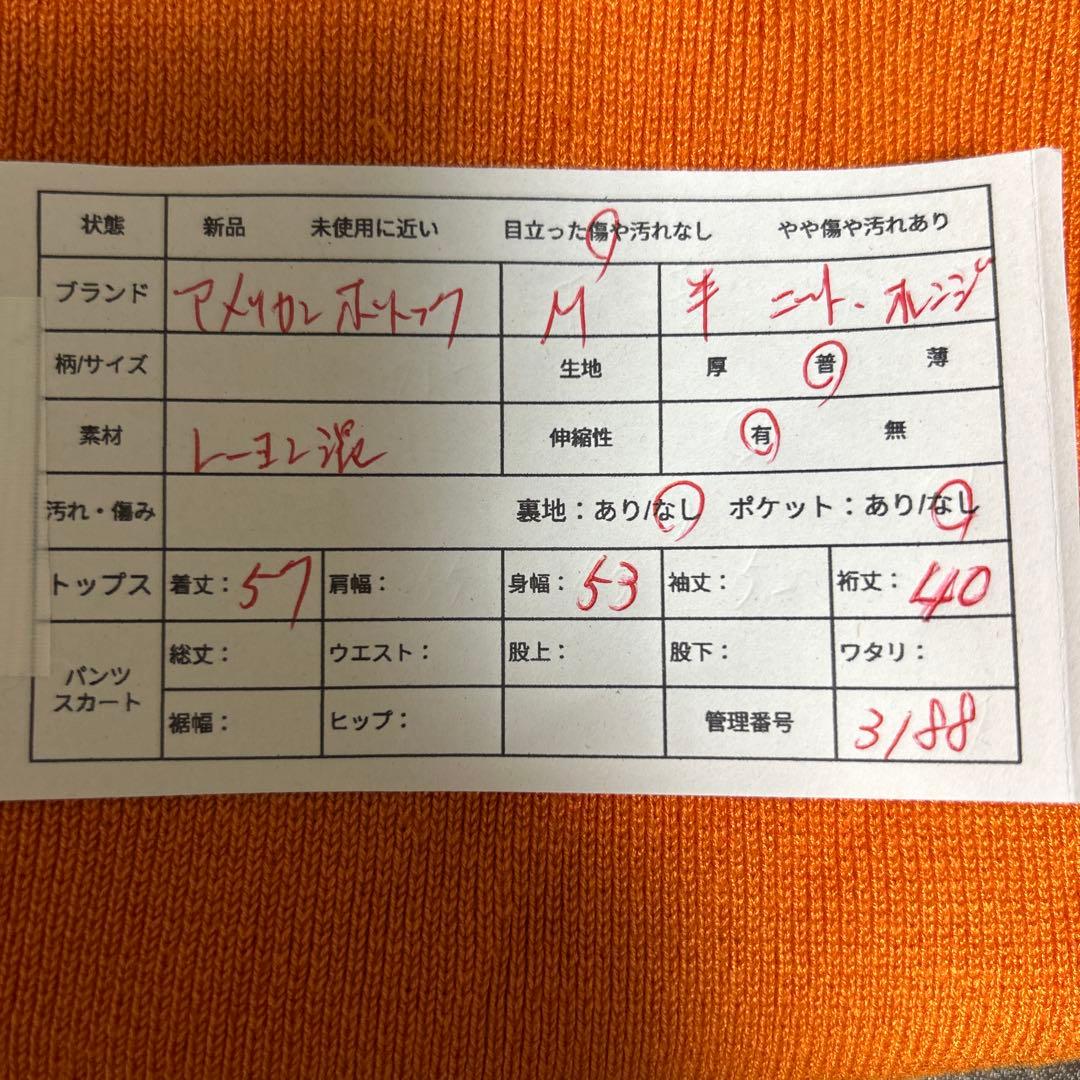 状態 新品 未使用に近い 目立った傷や汚れなし やや傷や汚れあり
ブランド アメリカンホリック M 半 ニット・オレンジ
柄/サイズ 生地 厚 普 薄
素材 レーヨン混 伸縮性 有 無
汚れ・傷み 裏地：あり/なし ポケット：あり/なし
トップス 着丈：57 肩幅： 身幅：53 袖丈： 裄丈：40
パンツ
スカート
総丈： ウエスト： 股上： 股下： ワタリ：
裾幅： ヒップ： 管理番号 3188